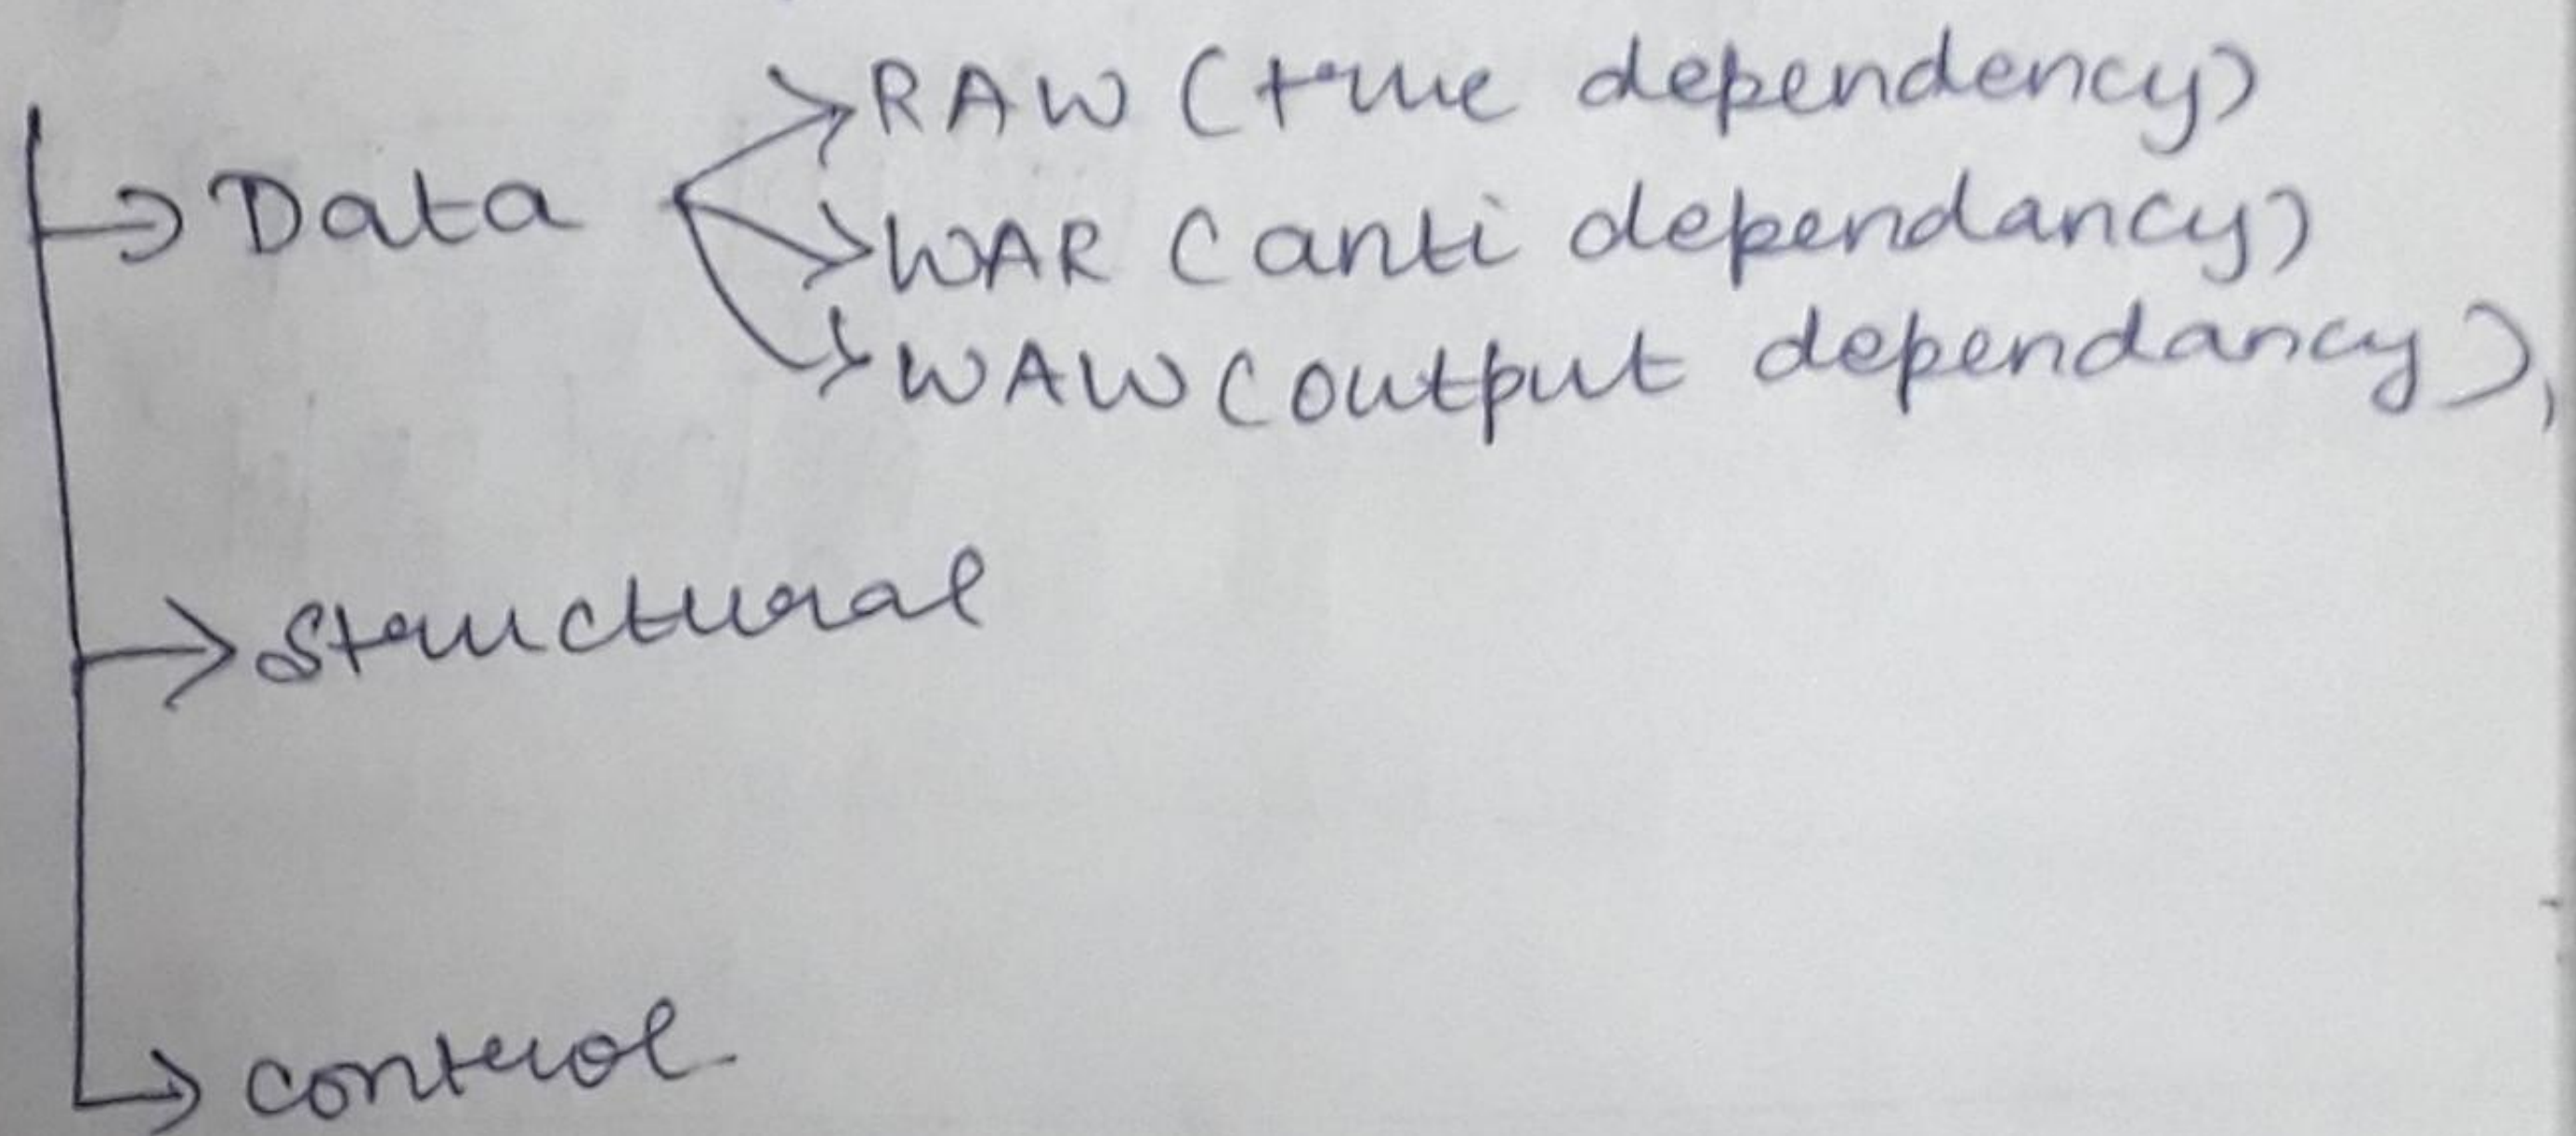 Data
RAW (true dependency)
WAR (anti dependancy)
WAW (output dependancy),
Structural
control